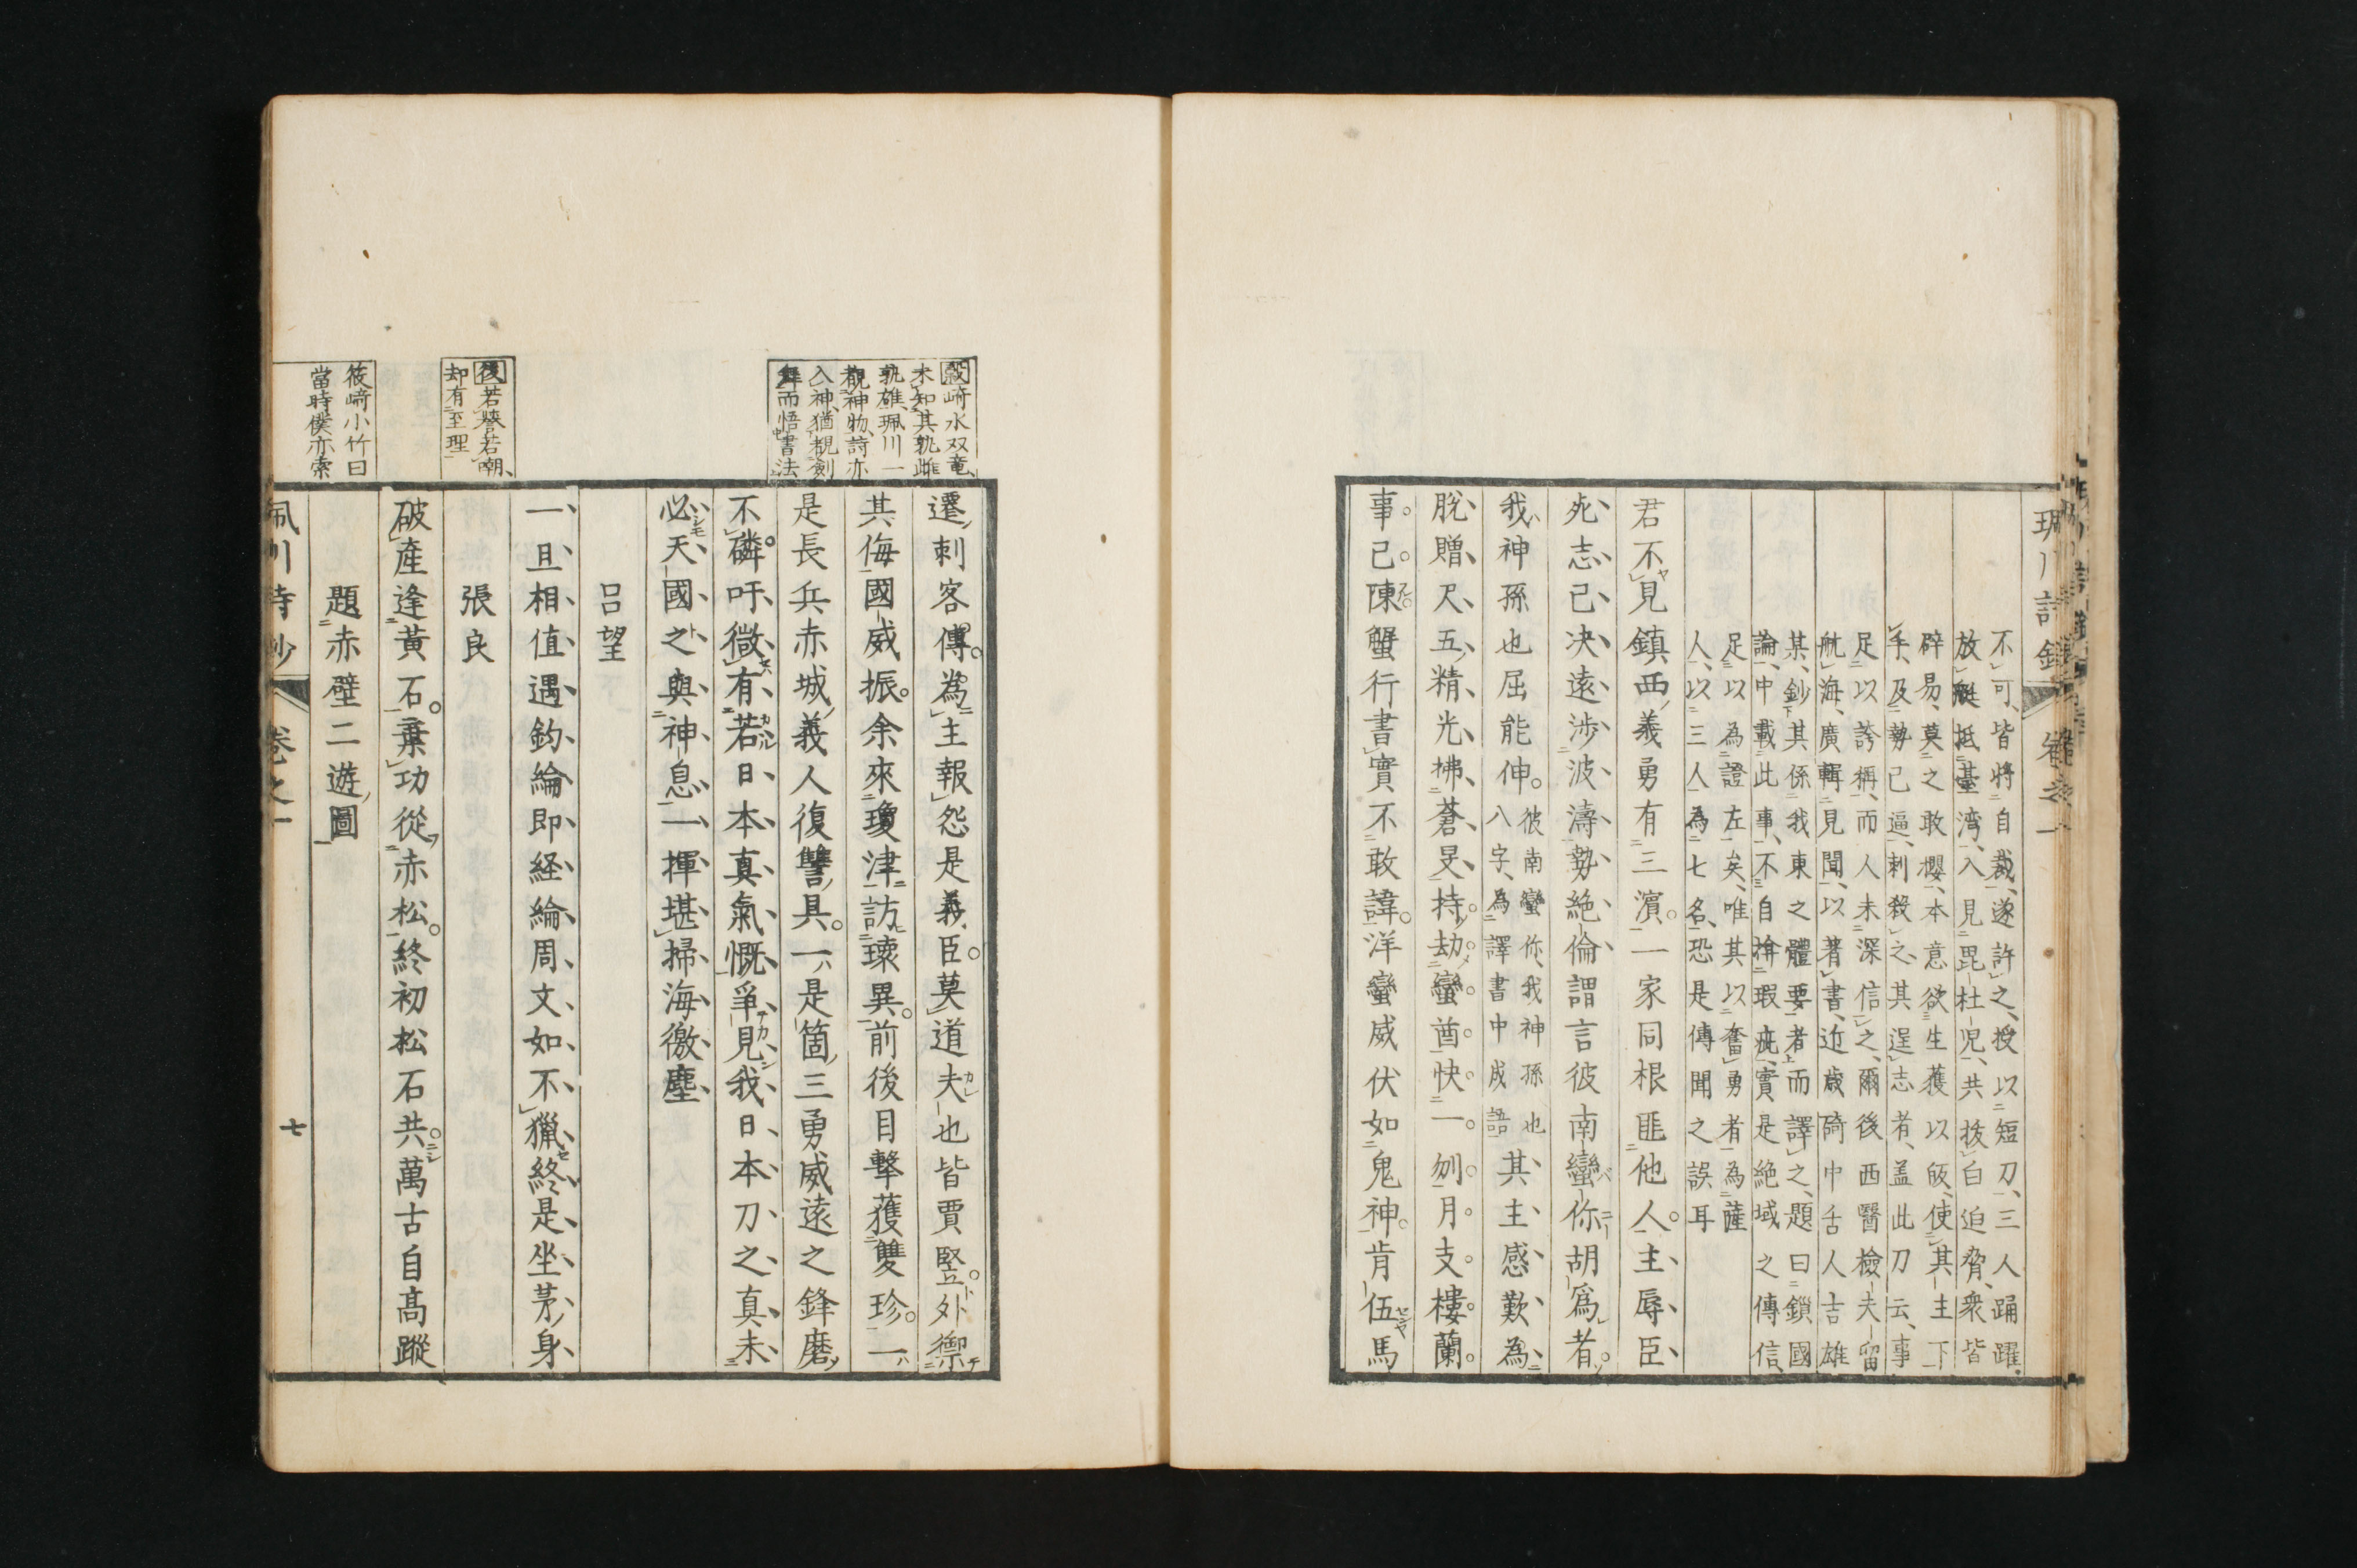 不可、皆將自裁、遂許之、授以短刀、三人踊躍、
放艇抵臺湾、入見毘杜児、共抜白迫脅、衆皆
辟易、莫之敢櫻、本意欲生獲以皈、使其主下
手、及勢已逼、刺殺之、其逞志者、盖此刀云、事
足以誇稱、而人未深信之、爾後西醫檢夫留
航海、廣輯見聞、以著書、近歳碕中舌人吉雄
某、鈔其係我東之體要者而譯之、題曰鎖國
論、中載此事、不自揜瑕疵、實是絶域之傳信、
足以為證左矣、唯其以奮勇者為薩
人、以三人為七名、恐是傳聞之誤耳
君不見鎮西義勇有三濵一家同根匪他人主辱臣
死志已决遠渉波濤勢絶倫謂言彼南蠻你胡爲者
我神孫也屈能伸彼南蠻你、我神孫也
八字、為譯書中成語其主感歎為
脱贈尺五精光拂蒼旻持劫蠻酋快一刎月支樓蘭
事已陳蟹行書實不敢諱洋蠻威伏如鬼神肯伍馬
遷刺客傳為主報怨是義臣莫道夫也皆賈竪外禦
其侮國威振余來瓊津訪瓌異前後目擊獲雙珍一
是長兵赤城義人復讐具一是箇三勇威遠之鋒磨
不磷吁微有若日本真氣慨爭見我日本刀之真未
必天國之與神息一揮堪掃海徼塵
呂望
一旦相值遇鈎綸即経綸周文如不獵終是坐茅身
張良
破産逢黃石棄功從赤松終初松石共萬古自高蹤
題赤壁二遊圖
崎水双竜、
未知其孰雌
孰雄、珮川一
覩神物、詩亦
入神、猶覩劍
舞而悟書法
後若獎若嘲、
却有至理
筱崎小竹曰
當時僕亦索
卷之一
七